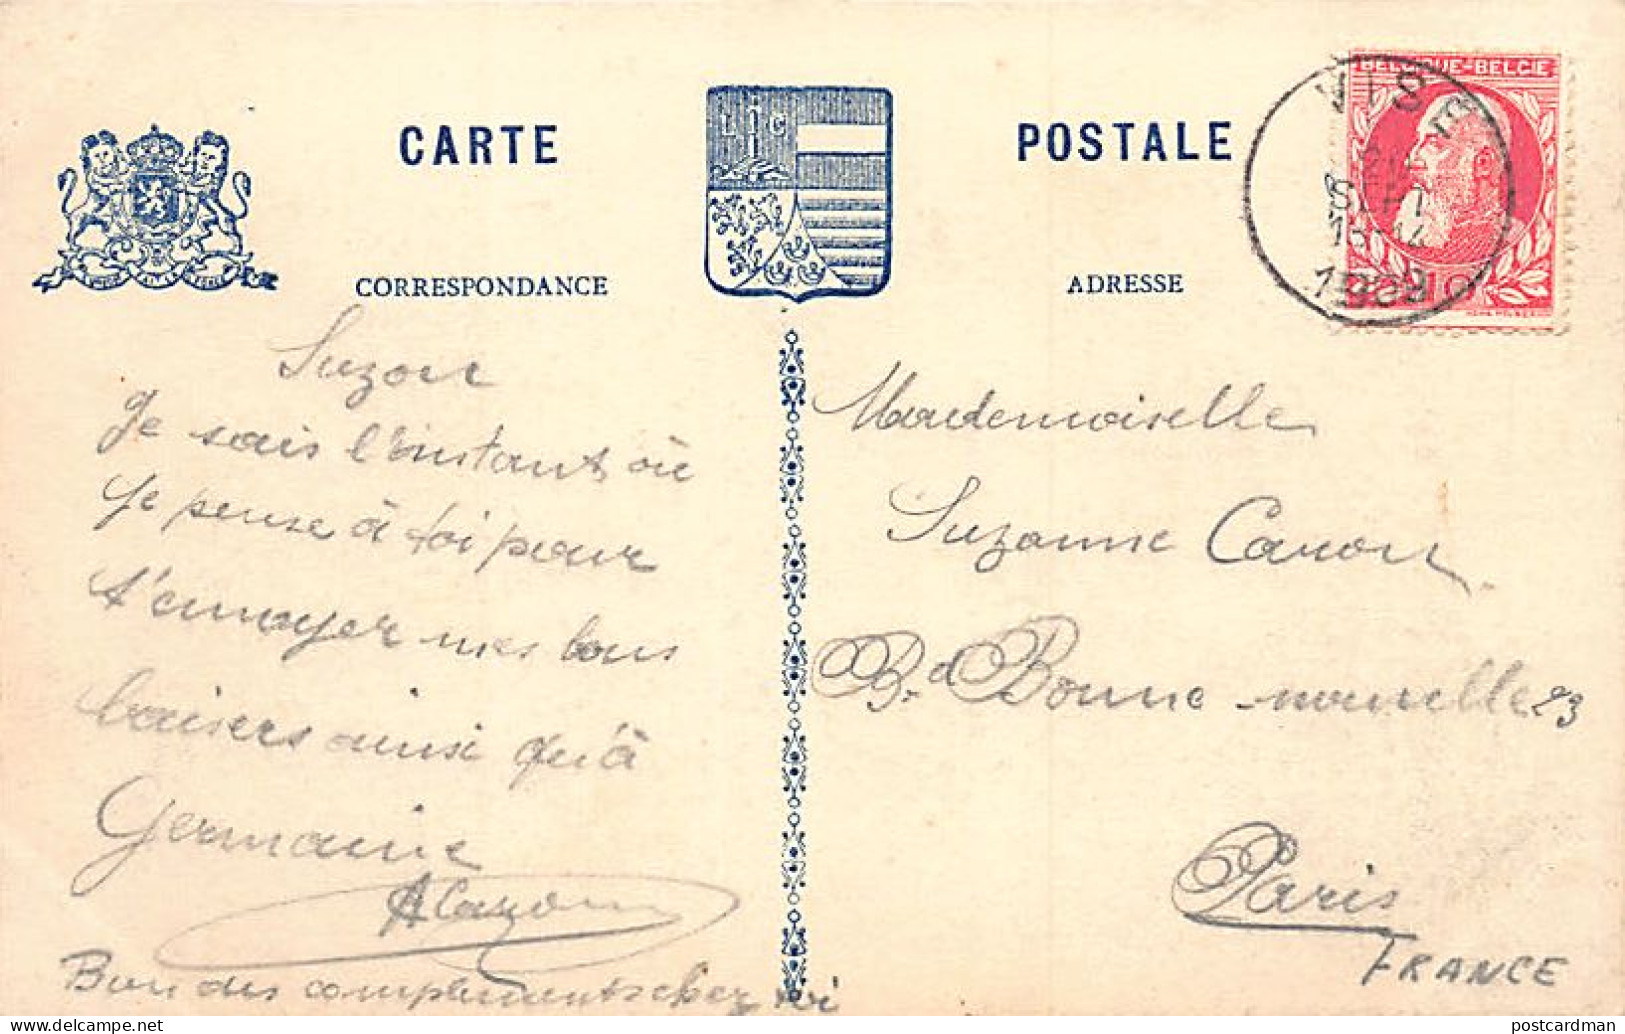 CARTE POSTALE
CORRESPONDANCE
ADRESSE
LIG
BELGIQUE-BELGIE
VISÉ
SEPT
1909
10
Suzon
Je sais l'instant où
je pense à toi pour
t'envoyer mes bons
baisers ainsi qu'à
Germaine
ACaron
Bien des compliments chez toi
Mademoiselle
Suzanne Caron
Bd Bonne-nouvelle 23
Paris
FRANCE
postcardman